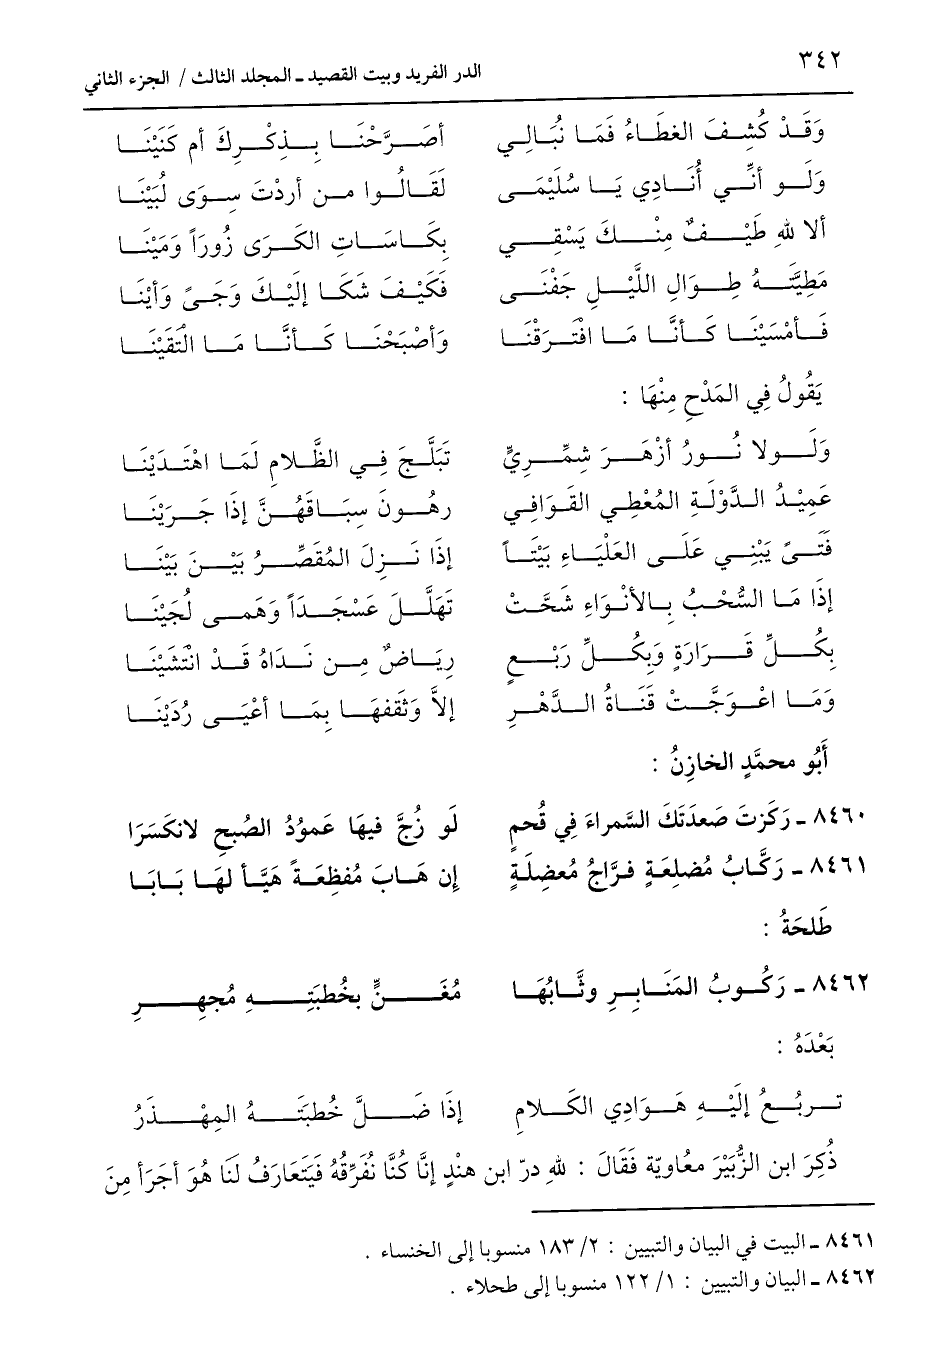 ٣٤٢ الدر الفريد وبيت القصيد ـ المجلد الثالث / الجزء الثاني
وَقَدْ كُشِفَ الغطَاءُ فَمَا نُبَالِي أصَرَّحْنَا بِذِكْرِكَ أم كَنَيْنَا
وَلَو أنِّي أُنَادِي يَا سُلَيْمَى لَقَالُوا من أردْتَ سِوَى لُبَيْنَا
ألا للهِ طَيْفٌ مِنْكَ يَسْقِي بِكَاسَاتِ الكَرَى زُوراً وَمَيْنَا
مَطِيَّتَهُ طِوَالِ اللَّيْلِ جَفْنَى فَكَيْفَ شَكَا إلَيْكَ وَجَىً وَأيْنَا
فَأمْسَيْنَا كَأنَّا مَا افْتَرَقْنَا وَأصْبَحْنَا كَأنَّا مَا الْتَقَيْنَا
يَقُولُ فِي المَدْحِ مِنْهَا :
وَلَولا نُورُ أزْهَرَ شمَّرِيٍّ تَبَلَّجَ فِي الظَّلامِ لَمَا اهْتَدَيْنَا
عَمِيْدُ الدَّوْلَةِ المُعْطِي القَوَافِي رهُونَ سِبَاقهُنَّ إذَا جَرَيْنَا
فَتَىً يَبْنِي عَلَى العَلْيَاءِ بَيْتَاً إذَا نَزلَ المُقَصِّرُ بَيْنَ بَيْنَا
إذَا مَا السُّحْبُ بِالأنْوَاءِ شَحَّتْ تَهَلَّلَ عَسْجَداً وَهَمى لُجَيْنَا
بِكُلِّ قَرَارَةٍ وَبِكُلِّ رَبْعٍ رِيَاضٌ مِن نَدَاهُ قَدْ انْتَشَيْنَا
وَمَا اعْوَجَّتْ قَنَاةُ الدَّهْرِ إلاَّ وَثَقفهَا بِمَا أعْيَى رُدَيْنَا
أبُو محمَّدٍ الخازِنُ :
٨٤٦٠ ـ رَكَزتَ صَعدَتَكَ السَّمراءَ فِي قُحمٍ لَو زُجَّ فيهَا عَمودُ الصُبحِ لانكَسَرَا
٨٤٦١ ـ رَكَّابُ مُضلِعَةٍ فرَّاجُ مُعضِلَةٍ إن هَابَ مُفظِعَةً هَيَّأ لهَا بَابَا
طَلحَةُ :
٨٤٦٢ ـ رَكُوبُ المَنَابِرِ وثَّابُهَا مُغَنٍّ بخُطبَتِهِ مُجهِرِ
بَعْدَهُ :
تربُعُ إلَيْهِ هَوَادِي الكَلامِ إذَا ضَلَّ خُطبَتَهُ المِهْذَرُ
ذُكِرَ ابن الزُّبَيْرَ معُاويّة فَقَالَ : للهِ درّ ابن هنْدٍ إنَّا كُنَّا نُفَرِّقُهُ فَيَتَعَارَفُ لَنَا هُوَ أجَرَأ مِنَ
٨٤٦١ ـ البيت في البيان والتبيين : ٢/ ١٨٣ منسوبا إلى الخنساء .
٨٤٦٢ ـ البيان والتبيين : ١/ ١٢٢ منسوبا إلى طحلاء .